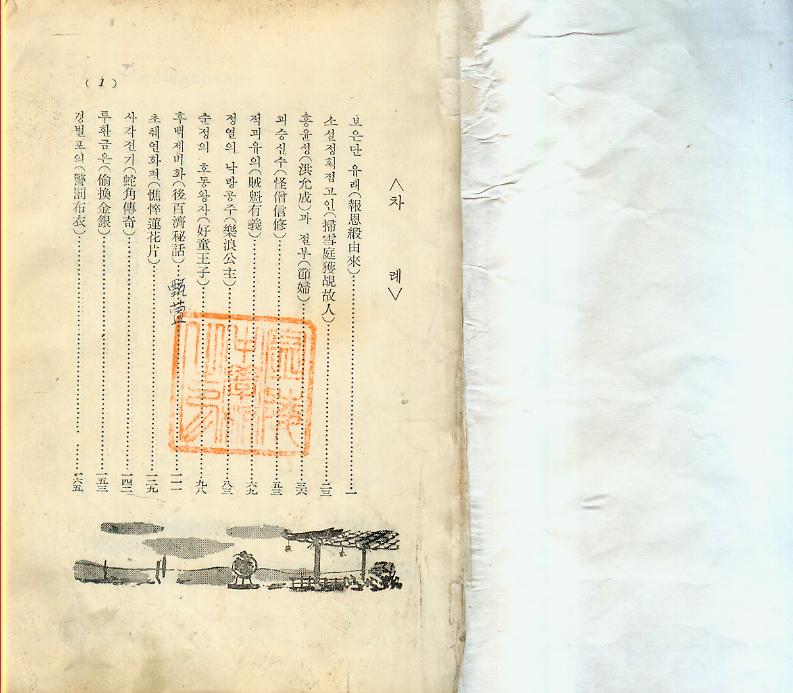 <차 례>
보은단 유래(報恩緞由來)……一
소설정획점고인(掃雪庭獲覘故人)……二三
홍윤성(洪允成)과 절부(節婦)……三六
괴승신수(怪僧信修)……五三
적괴유의(賊魁有義)……六九
정열의 낙랑공주(樂浪公主)……八三
순정의 호동왕자(好童王子)……九八
후백제비화(後百濟秘話)……一一一
甄萱
초췌연화편(憔悴蓮花片)……一二九
사각전기(蛇角傳奇)……一四二
투환금은(偷換金銀)……一五三
경벌포의(警罰布衣)……一六五
(1)